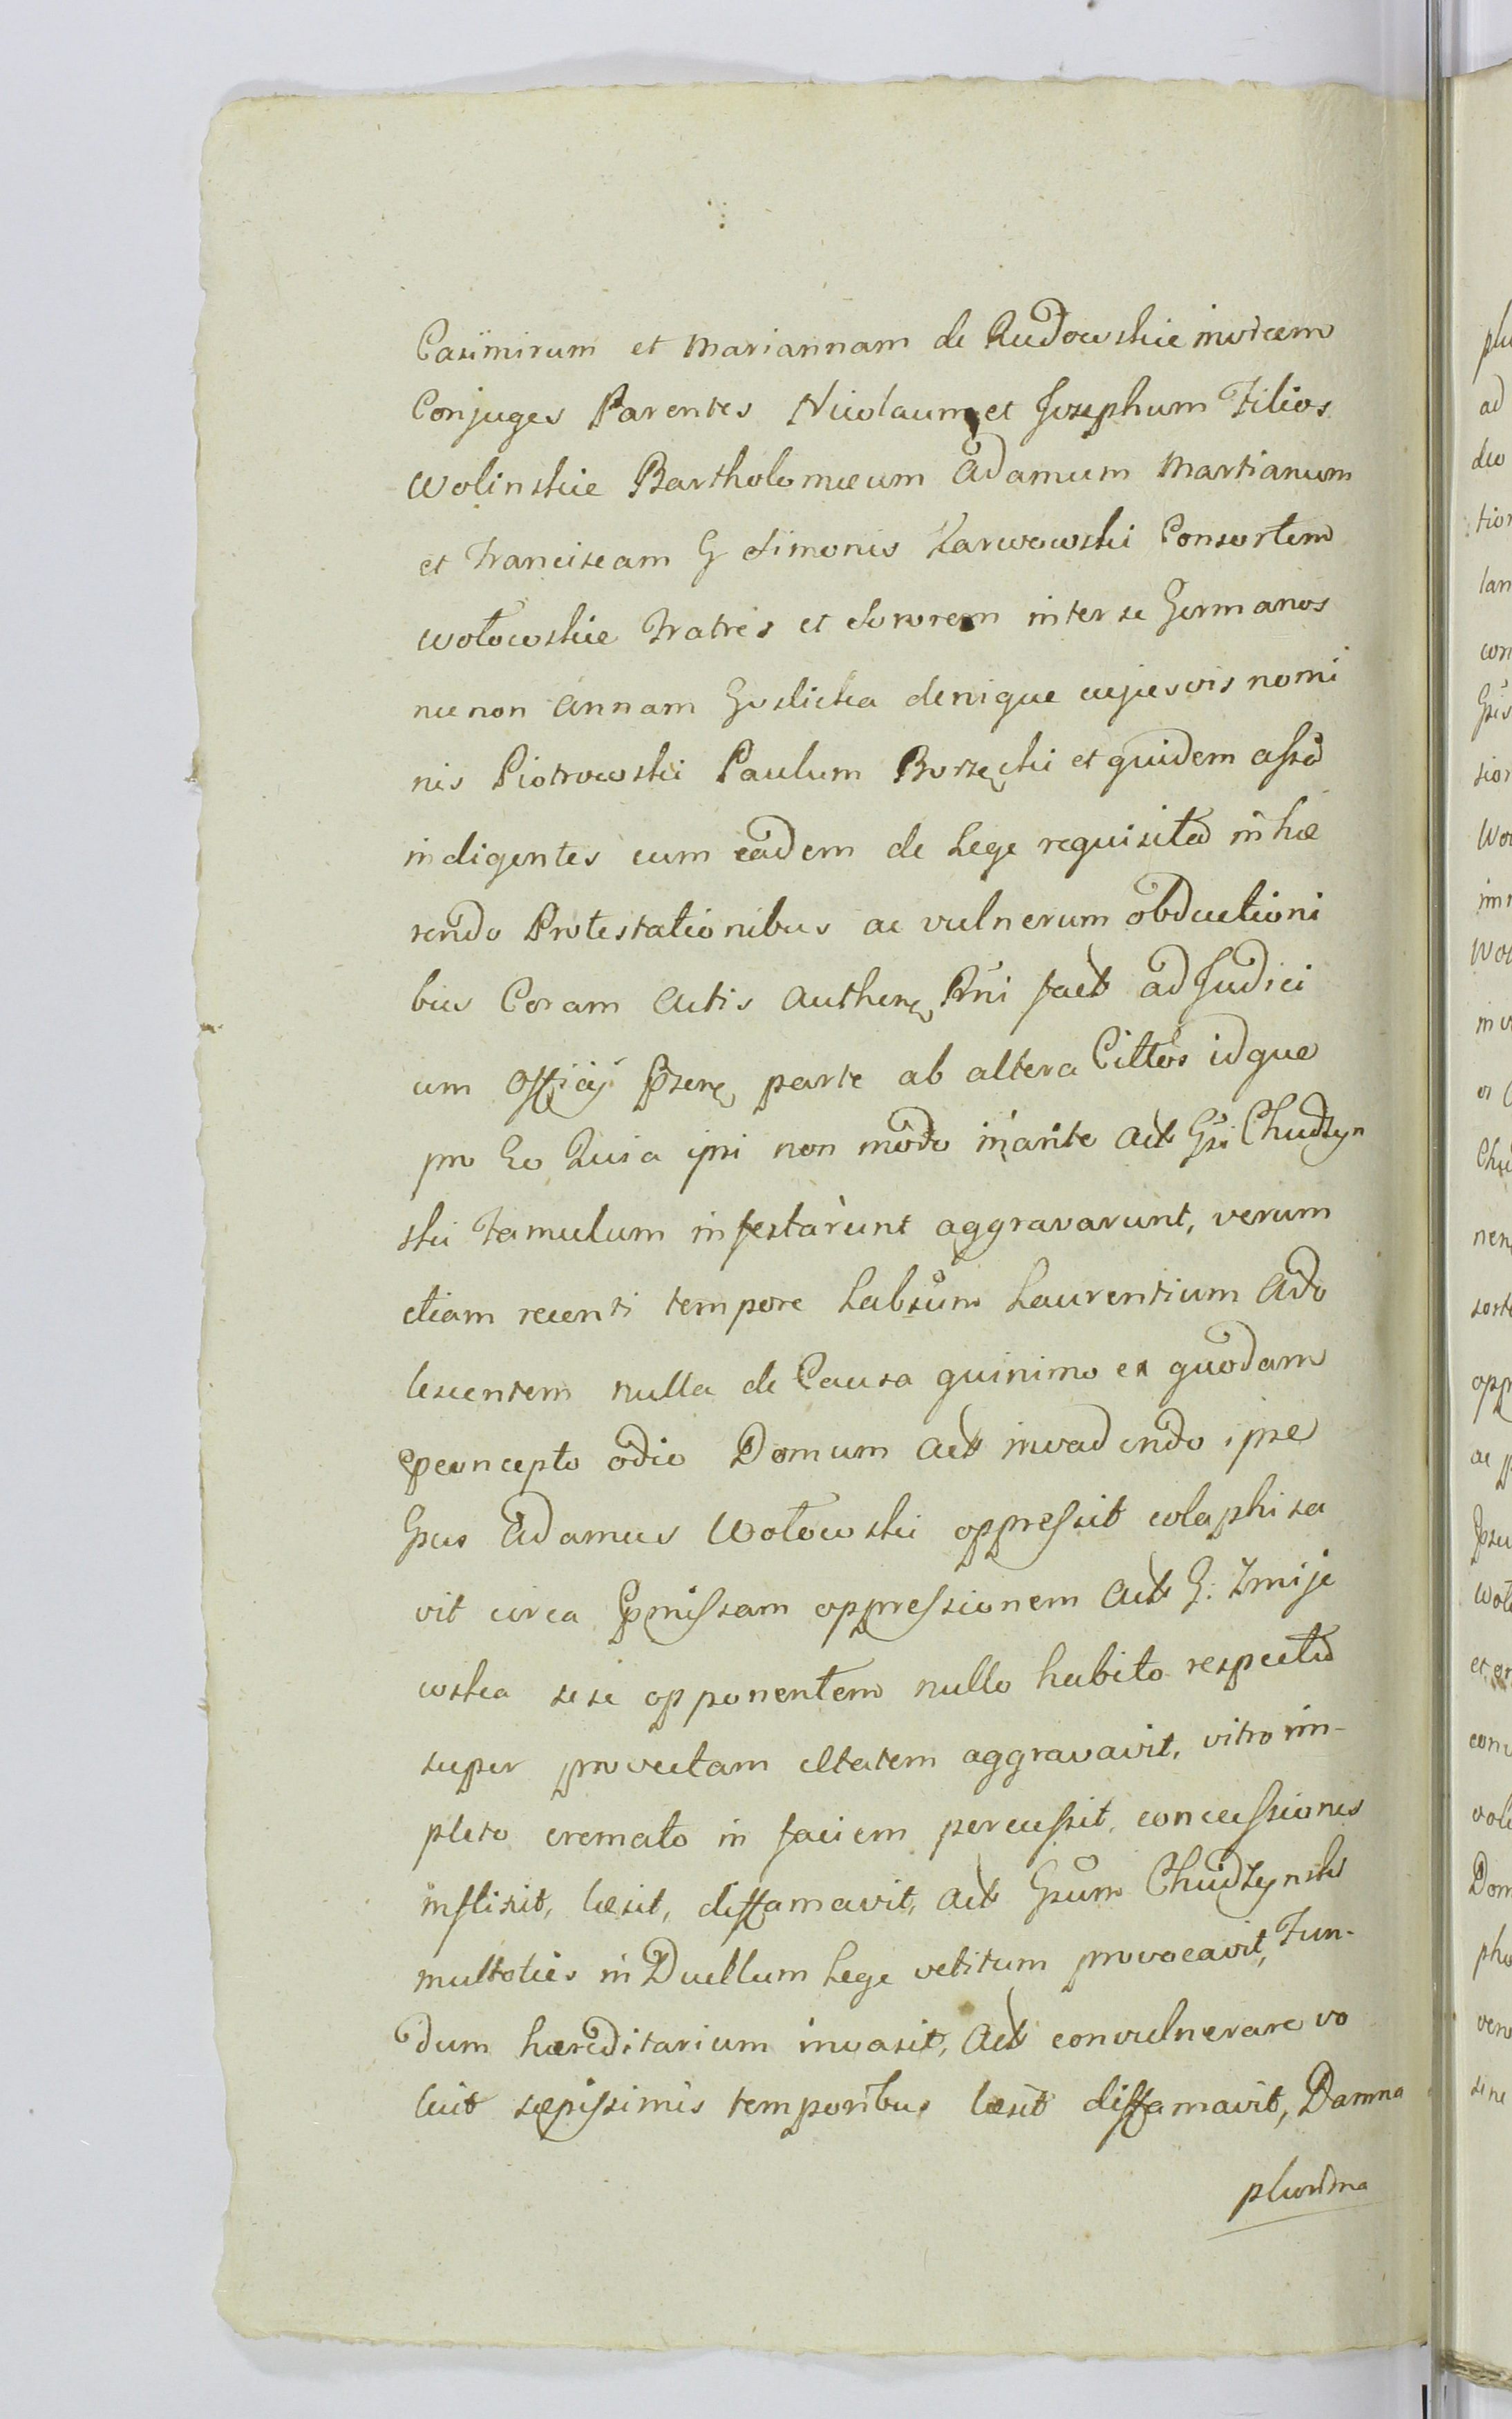 Casimirum et Mariannam de Rudowskie invicem
Conjuges Parentes Nicolaum et Josephum Filios
Wolinskie Bartholomæum Adamum Martianum
et Franciscam G Simonis Karwowski Consortem
Wołowskie Fratres et Sororem inter se Germanos
nec non Annam Goslicka denique cujusvis nomi
nis Piotrowski Paulum Borzęcki et quidem assa
indigentes cum eadem de Lege requisita inhæ
rendo Protestationibus ac vulnerum obductioni
bus Coram Actis Authen Pñi fact ad Judici
um Officij parte ab altera Cittos idque
pro Eo Quia ipsi non modo Act Gsi Chudzyn
ski Famulum infestarunt aggravarunt, verum
etiam recenti tempore Labsum Laurentium Ado
lescentem nulla de Causa quinimo ex quodam
pconcepto odio Domum Act invadendo ipse
Gsus Adamus Wołowski oppressit colaphisa
vit circa pmissam oppressionem Act G: Zmije
wska sese opponentem nullo habito respectu
super provectam ætatem aggravavit, vitro im-
pleto cremato in faciem percussit, concussiones
inflixit, læsit, diffamavit, Act Gsum Chudzynski
multoties in Duellum Lege vetitum provocavit, Fun-
dum hæreditarium invasit, Act convulnerare vo
luit sæpissimis temporibus læsit diffamavit, Damna
plurima